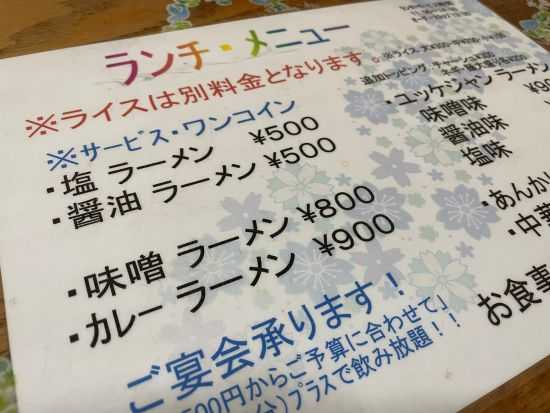 ランチ・メニュー
※ライスは別料金となります
※サービス・ワンコイン
・塩 ラーメン ¥500
・醤油 ラーメン ¥500
・味噌 ラーメン ¥800
・カレー ラーメン ¥900
ご宴会承ります！
00円からご予算に合わせて」
プラスで飲み放題！！
・ユッケジャンラーメン
味噌味
醤油味
塩味
・あんか
・中華
お食事